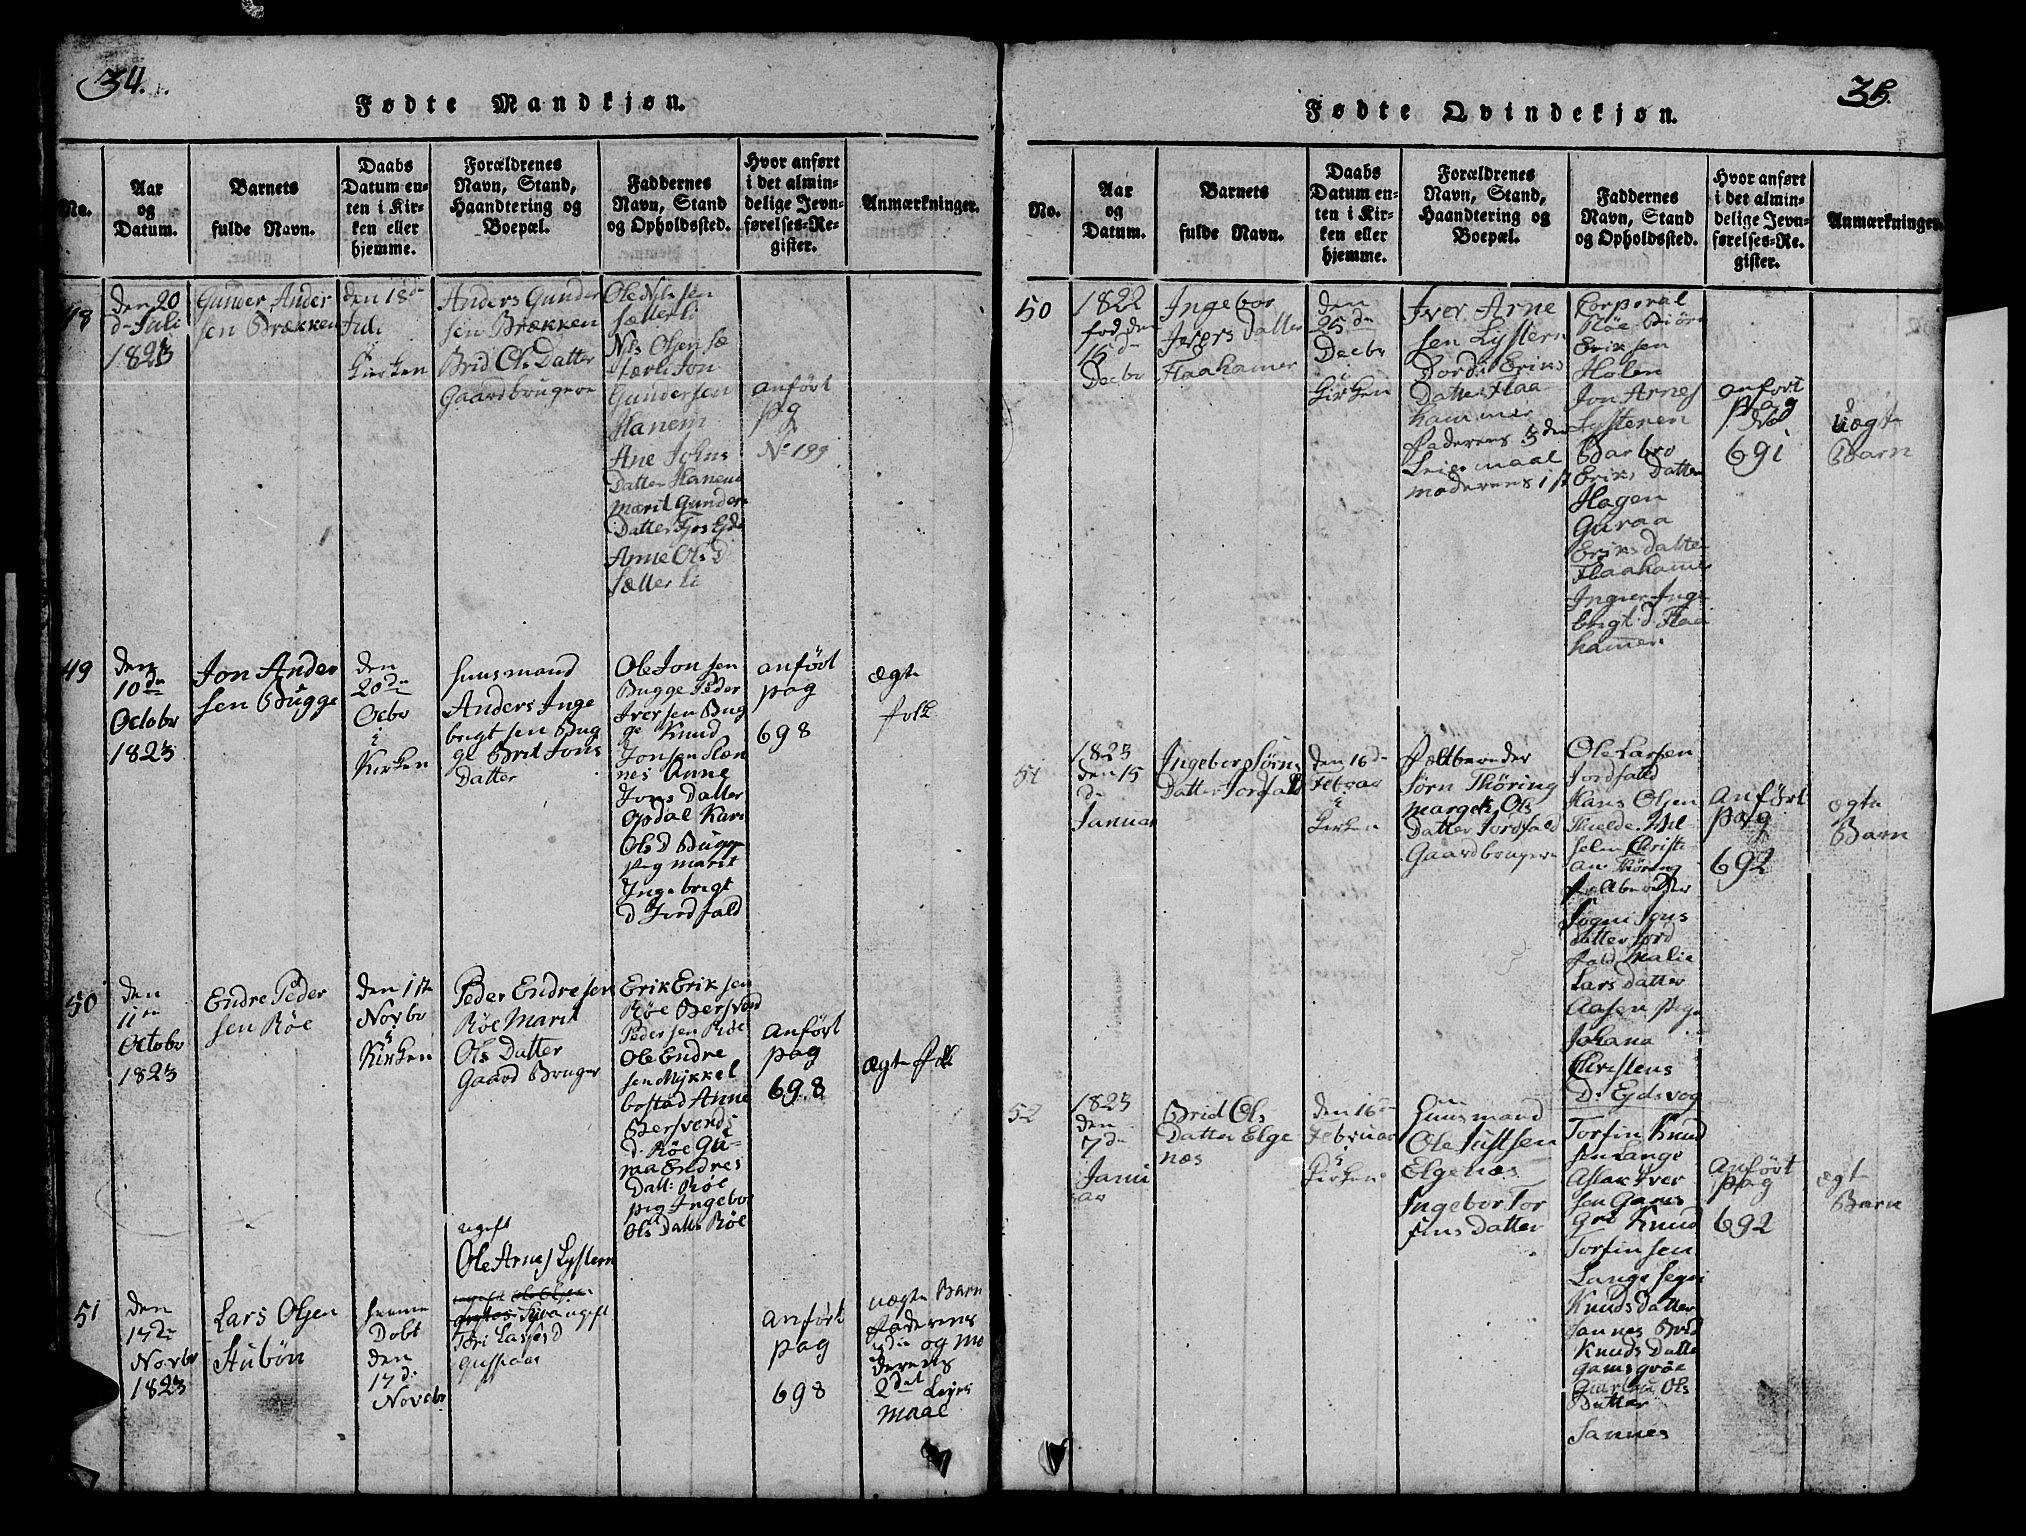 34.
Fødte Mandkjøn.
No.
Aar
og
Datum.
Barnets
fulde Navn.
Daabs
Datum en-
ten i Kir-
ken eller
hjemme.
Forældrenes
Navn, Stand,
Haandtering og
Boepæl.
Faddernes
Navn, Stand
og Opholdssted.
Hvor anført
i det almin-
delige Jevn-
førelses-Re-
gister.
Anmærkninger.
48
den 20
d- Juli
1823
Gunder Ander
sen Brækken
den 18de
Juli
Kirken
Anders Gunder
sen Brækken
Brid Ols Datter
Gaardbrugere
Ole Nilssen
sætterli
Nils Olsen sæ
tterli Jon
Gundersen
Hanem
Ane Johns
Datter Hanem
Marit Gunders
Datter
Anne Ols D
sætter li
anført
pag
No 199
49
den
10de
Octobr
1823
Jon Ander
sen Bugge
den
20de
Ocbr
i
Kirken
huusmand
Anders Inge
brigtsen Bug
ge Brit Jons
Datter
Ole Jonsen
Bugge Peder
Iversen Bug
ge Knud
Jonsen
nes Anne
Jons Datter
Opdal Kari
Ols D Bugge
pig marit
Ingebrigt
D Jordfald
anført
pag
698
ægte
folk
50
den
11te
Octobr
1823
Endre Peder
sen Røe
den 1ste
Novbr
i
Kirken
Peder Endresen
Røe Marit
Ols Datter
Gaard Bruger
Erik Eriksen
Røe Bersvend
Pedersen Røe
Ole Endre
sen Mykkel
bostad Anne
Bersvends
d. Røe Gu-
raa Endres
Datt: Røe
pig Ingebor
Ols Datter Røe
anført
pag
698
ægte folk
51
den
17de
Novbr
1823
Lars Olsen
Stubøn
hiemme
Dobt
den
17d
Novebr
ugift
Ole Arnes Lystern
ugift
Tori Larses D
anført
pag
698
uægte Barn
faderens
og mo
derens
2det Leyers
maal
35.
Fødte Qvindekjøn.
No.
Aar
og
Datum.
Barnets
fulde Navn.
Daabs
Datum en-
ten i Kir-
ken eller
hjemme.
Forældrenes
Navn, Stand,
Haandtering og
Boepæl.
Faddernes
Navn, Stand
og Opholdssted.
Hvor anført
i det almin-
delige Jevn-
førelses-Re-
gister.
Anmærkninger.
50
1822
fød den
16de
Decbr
Ingebor
Ivers Datter
Flaahamer
den
25de
Decbr
i
Kirken
Iver Arne
sen Lystern
Dordi Eriks
Datter Flaa
hammer
Faderens 3die
Leiermaal
moderens 1ste
Corporal
Røe Biørn
Eriksen
Holen
Jon Arnes
Lysteren
Barbro
Eriks Datter
Hagen
Guraa
Eriks datter
Flaahamer
Ingier Inge
brigt d Flaa
hamer
anført
pag
691
uægte
Barn
51
1823
den 15
d-
Januar
Ingebor Sørns
Datter Jordfald
den 16de
Febuar
i
Kirken
Feltbereder
Sørn Thøring
Margek Ols
Datter Jordfald
Gaardbruger
Ole Larsen
Jordfald
Hans Olsen
Christi
an Thøring
Feltbereder
Sogni Jons
datter Jord
fald Malie
Lars datter
Aasen pige
Johana
Christens
D. Ejdsvog
Anført
pag
692
ægte
Barn
52
1823
den
7de
Janu
ar
Brid Ols
Datter Elge
næs
den 16de
Februar
i
Kirken
huusmand
Ole Justsen
Elgenæs
Ingebor Tor
fins Datter
Torfin Knud
sen Lange
Aslak Iver
sen Gams
Grø Knud
Torfinsen
Lange Segri
Knuds datter
Sannes Brid
Knuds Datter
Gamsgrøe
Ols
Datter
Sannes
Anført
pag
692
ægt
Barn